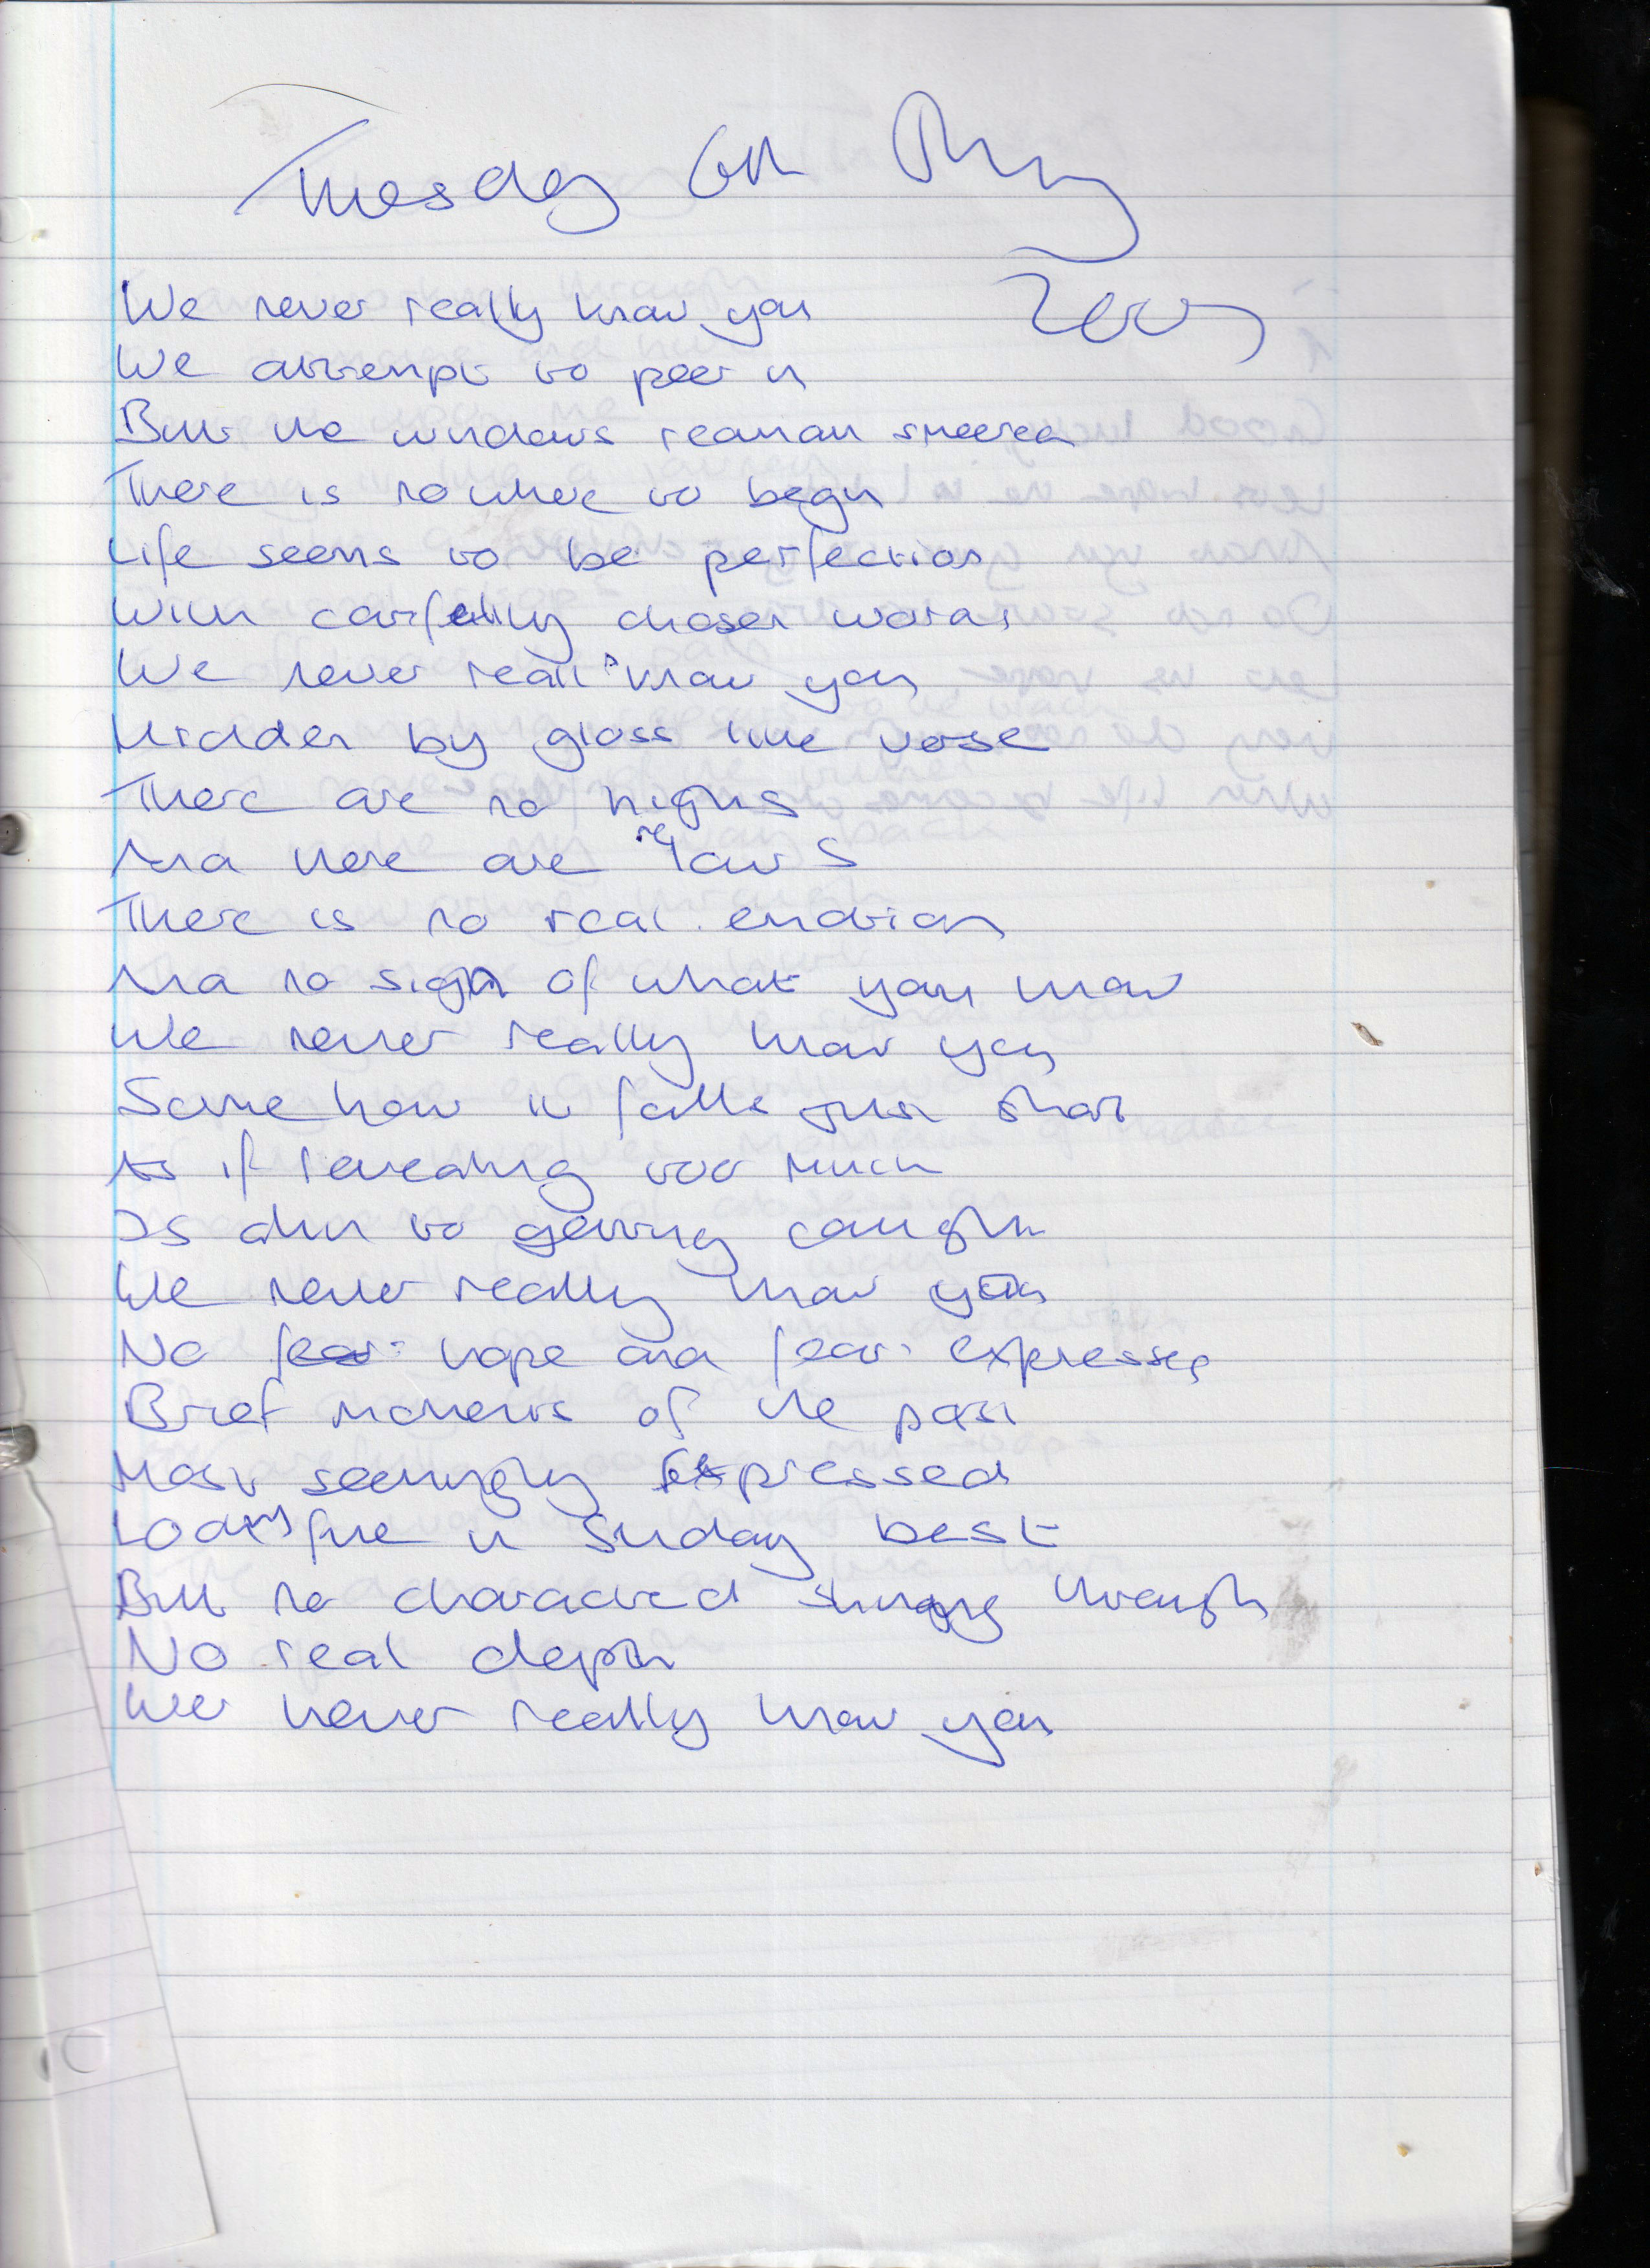 Tuesday 6th
We never really know you
We attempt to peer in
But the windows remain smeered
There is no where to begin
Life seems to be perfection
With carfully chosen words
We never reall know you
Hidden by gloss like verse
There are no highs
And there are no lows
There is no real emotion
And no sign of what you know
We never really know you
Some how it falls just short
As if revealing too much
Is akin to getting caught
We never really know you
No fear hope and fear expresses
Brief moments of the past
Most seemingly expressed
Looks fine in Sunday best
But no character shining through
No real depth
We never really know you